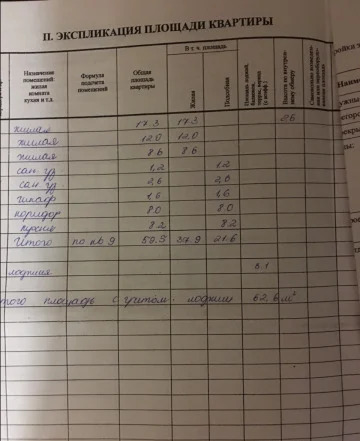 II. ЭКСПЛИКАЦИЯ ПЛОЩАДИ КВАРТИРЫ
Назначения помещений: жилая комната кухня и т.д. Формула подсчета помещений Общая площадь квартиры В т. ч. площадь Жилая Подсобная Площадь лоджий, балконов, террас, веранд (с коэфф.) Высота по внутреннему обмеру
жилая 17.3 17.3 2.6
жилая 12.0 12.0
жилая 8.6 8.6
сан. уз 1.2 1.2
сан. уз 2.6 2.6
шкаф 1.6 1.6
коридор 8.0 8.0
кухня 8.2 8.2
Итого по кв 9 59.5 37.9 21.6
лоджия 3.1
площадь с учётом лоджии 62,6 м²